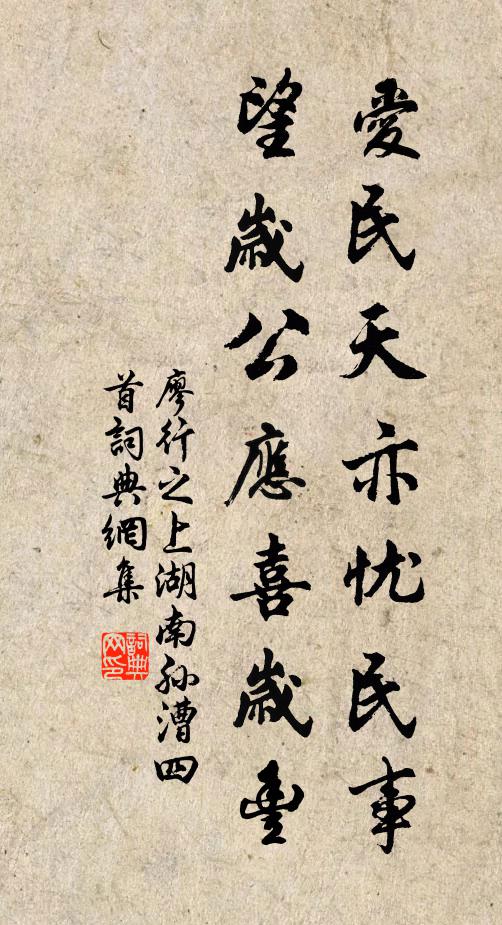 愛民天亦忧民事
望歲公應喜歲豊
廖行之上湖南孙漕四
首詞典網集
詞典网印